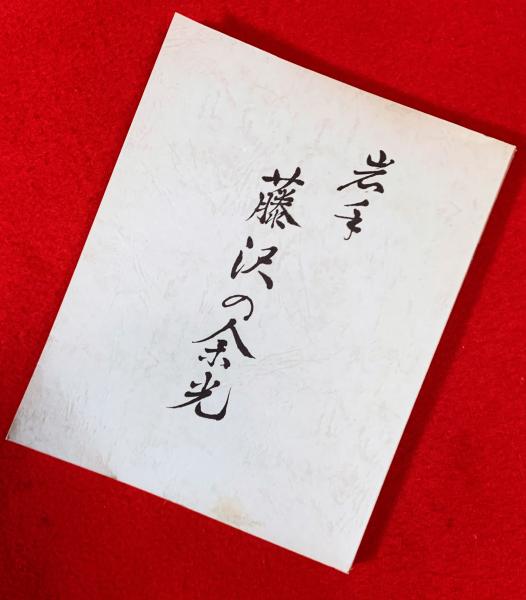 岩手
藤沢の余光